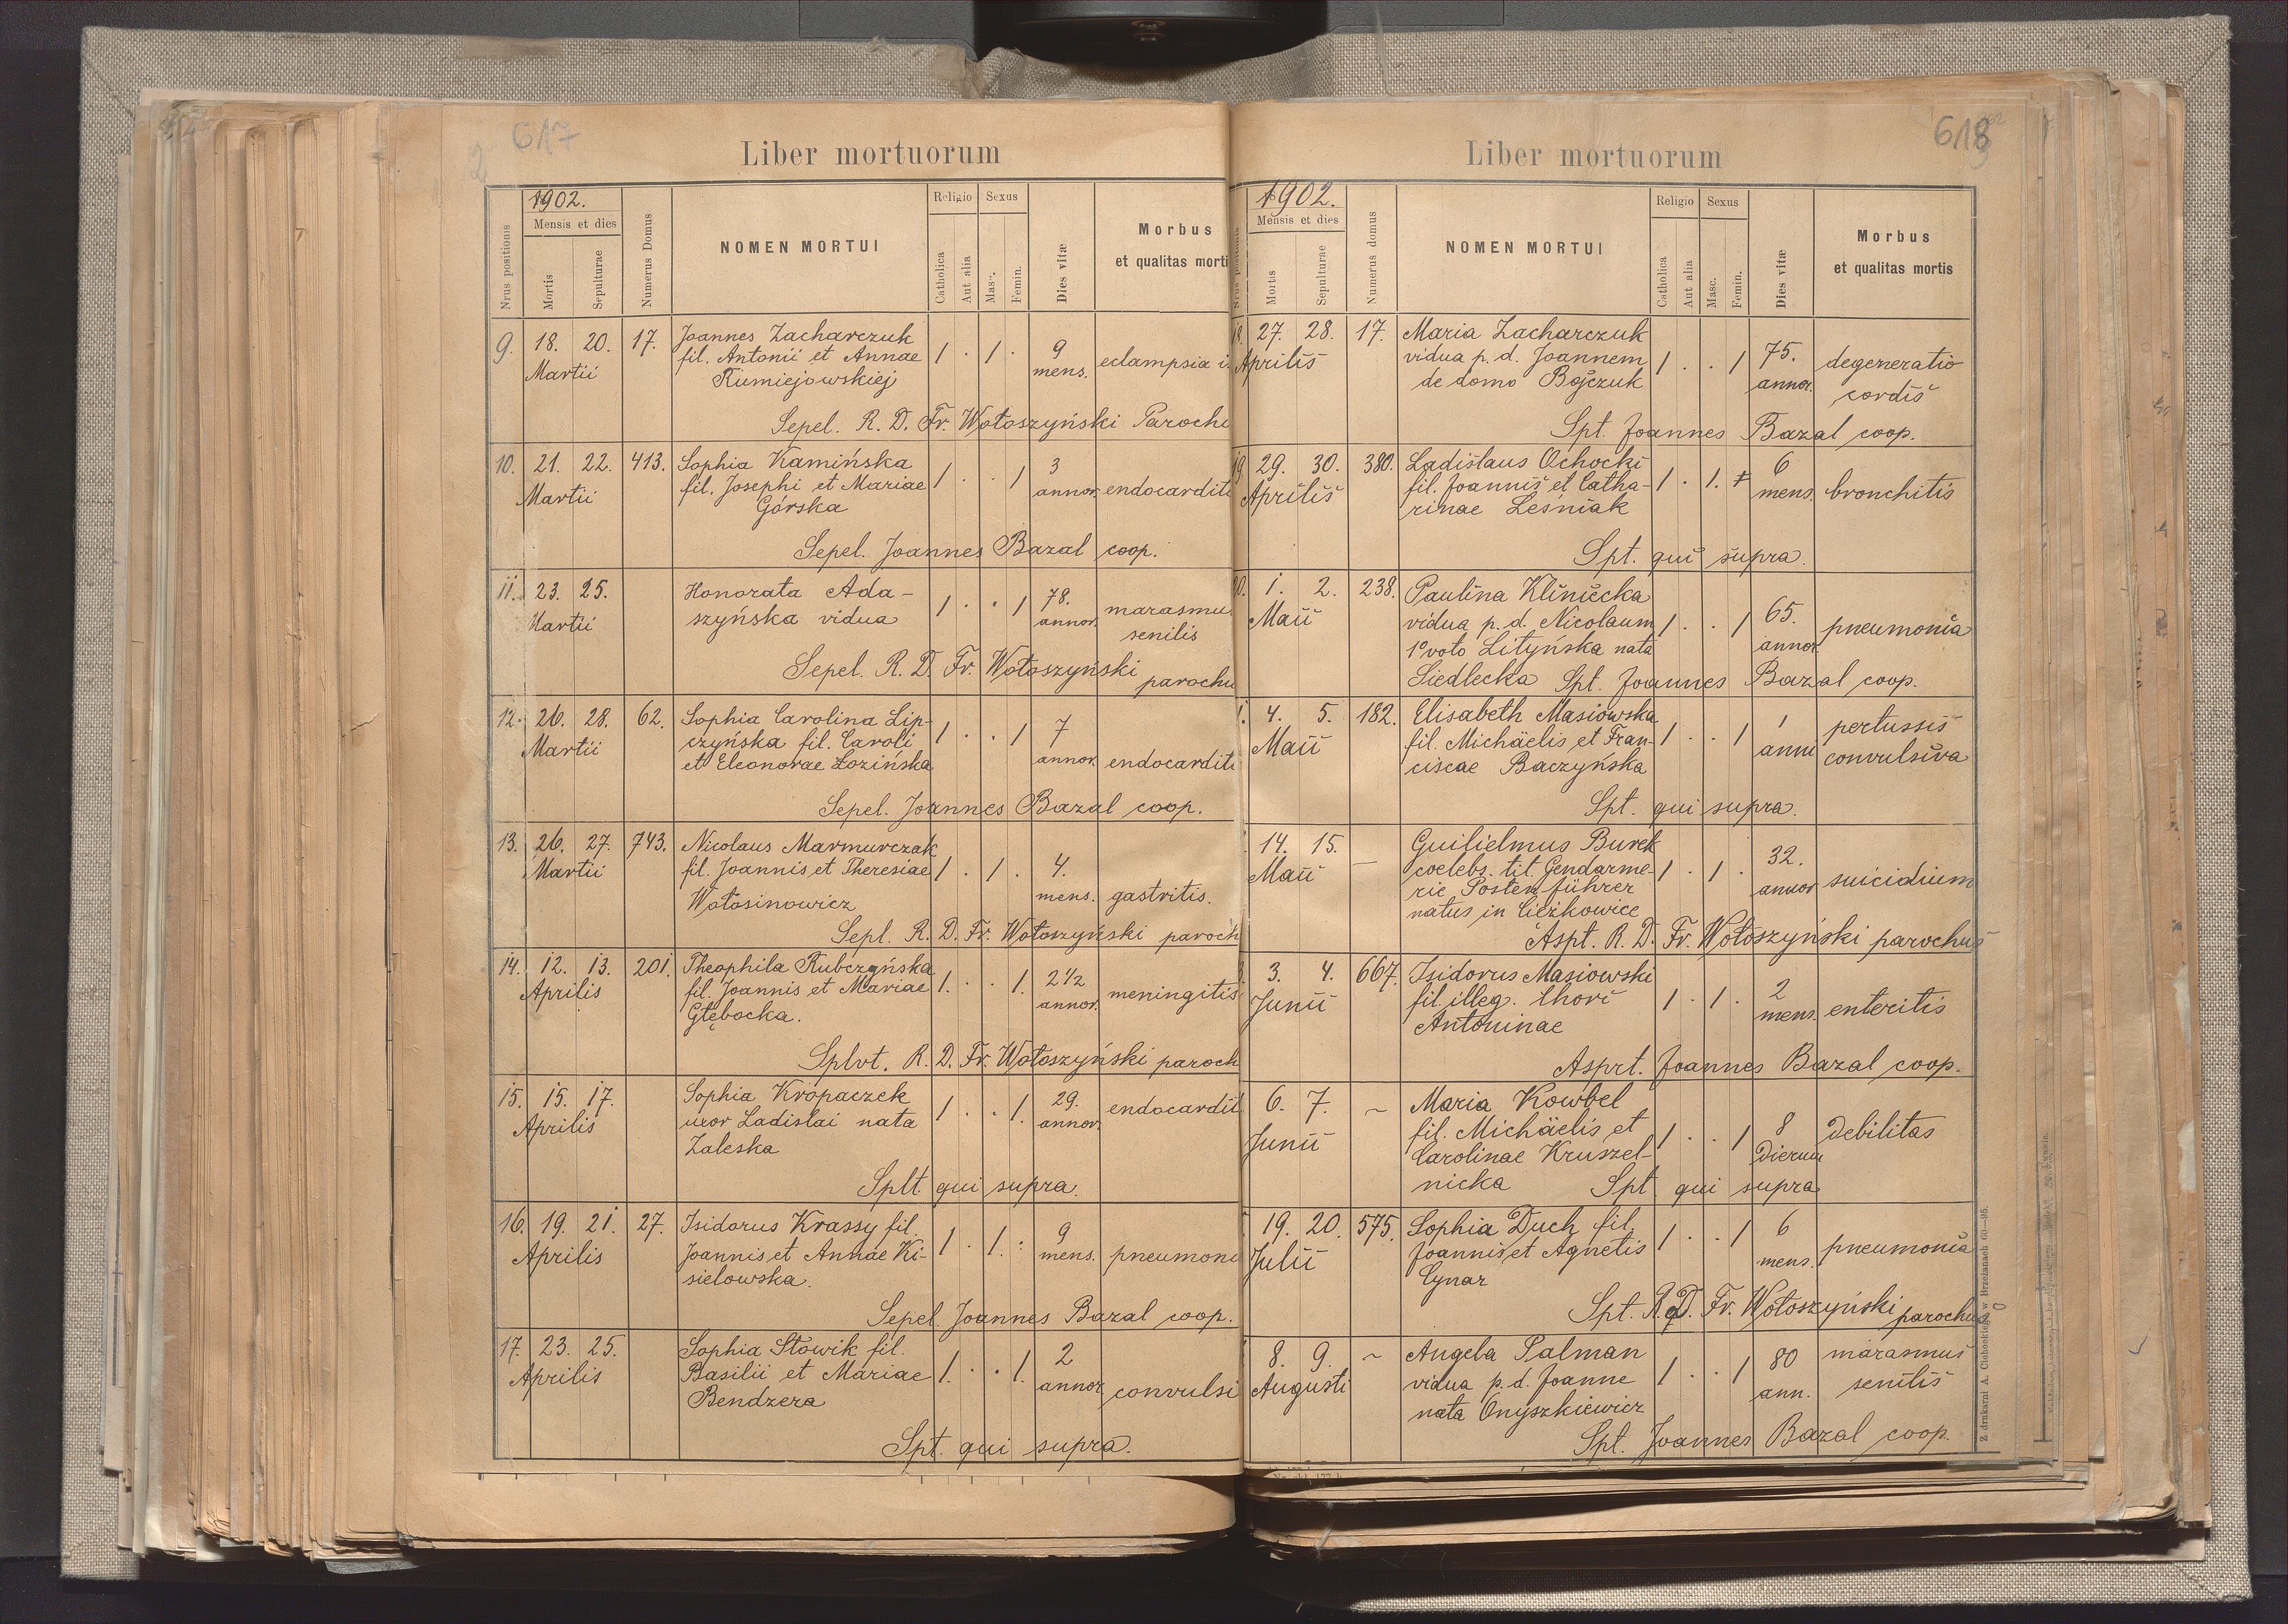 617
Liber mortuorum
1902.
Nrus positionis
Mensis et dies
Mortis
Sepulturae
Numerus Domus
NOMEN MORTUI
Religio
Catholica
Aut alia
Sexus
Masc.
Femin.
Dies vitæ
Morbus
et qualitas morti
9. 18. 20. 17. Joannes Zacharczuk
Martii fil. Antonii et Annae 1 . 1 . 9 mens. eclampsia
Rumiejowskiej
Sepel. R. D. Fr. Wołoszyński Paroch
10. 21. 22. 413. Sophia Kamińska
Martii fil. Josephi et Mariae 1 . . 1 3 annor. endocardit
Górska
Sepel. Joannes Bazal coop.
11. 23. 25. Honorata Ada-
Martii szyńska vidua 1 . . 1 78. annor. marasmu
senilis
Sepel. R. D. Fr. Wołoszyński
parochu
12. 26. 28. 62. Sophia Carolina Lip-
Martii czyńska fil. Caroli 1 . . 1 7
et Eleonorae Łozińska annor. endocardit
Sepel. Joannes Bazal coop.
13. 26. 27. 743. Nicolaus Marmurczak
Martii fil. Joannis et Theresiae 1 . 1 . 4.
Wołosinowicz mens. gastritis.
Sepl. R. D. Fr. Wołoszyński paroch
14. 12. 13. 201. Theophila Rubczyńska
Aprilis fil. Joannis et Mariae 1. . . 1. 2 1/2 annor. meningitis
Głębocka.
Splvt. R. D. Fr. Wołoszyński paroch
15. 15. 17. Sophia Kropaczek
Aprilis uxor Ladislai nata 1 . . 1. 29. annor. endocardit
Zaleska
Splt qui supra.
16. 19. 21. 27. Isidorus Krassy fil.
Aprilis Joannis et Annae Ki- 1 . 1. . 9 mens. pneumoni
sielowska.
Sepel. Joannes Bazal coop.
17. 23. 25. Sophia Słowik fil.
Aprilis Basilii et Mariae 1. . . 1. 2 annor. convulsi
Bendzera
Spt. qui supra.
618
Liber mortuorum
1902.
Nrus positionis
Mensis et dies
Mortus
Sepulturae
Numerus domus
NOMEN MORTUI
Religio
Catholica
Aut alia
Sexus
Masc.
Femin.
Dies vitæ
Morbus
et qualitas mortis
18. 27. 28. 17. Maria Zacharczuk
Aprilis vidua p. d. Joannem 1 . . 1 75. annor. degeneratio
de domo Bojczuk cordis
Spt. Joannes Bazal coop.
19. 29. 30. 380. Ladislaus Ochocki
Aprilis fil. Joannis et Catha- 1 . 1. 6 mens. bronchitis
rinae Leśniak
Spt. qui supra.
20. 1. 2. 238. Paulina Kliniecka
Maii vidua p. d. Nicolaum 1 . . 1 65. annor. pneumonia
1º voto Lityńska nata
Siedlecka Spt. Joannes Bazal coop.
4. 5. 182. Elisabeth Masiowska
Maii fil. Michäelis et Fran- 1 . . 1 1 anni pertussis
ciscae Baczyńska convulsiva
Spt. qui supra.
14. 15. — Guilielmus Burek
Maii coelebs. tit. Gendarme- 1 . 1 . 32. annor suicidium
rie Posten-führer
natus in Cieżkowice
Aspt. R. D. Fr. Wołoszyński parochus
3. 4. 667. Isidorus Masiowski
Junii fil. illeg. thori 1 . 1 . 2 mens. enteritis
Antoninae
Asprt. Joannes Bazal coop.
6. 7. ~ Maria Kowbel
Junii fil. Michäelis et 1 . . 1 8 dierum debilitas
Carolinae Kruszel-
nicka Spt qui supra
19. 20. 575. Sophia Duch fil.
Julii Joannis et Agnetis 1 . . 1 6 mens. pneumonia
Cynar
Spt. R. D. Fr. Wołoszyński parochus
8. 9. ~ Angela Salman
Augusti vidua p. d. Joanne 1 . . 1 80 ann. marasmus
nata Onyszkiewicz senilis
Spt. Joannes Bazal coop.
Z drukarni A. Cichockiego w Brzeżanach 60—95.